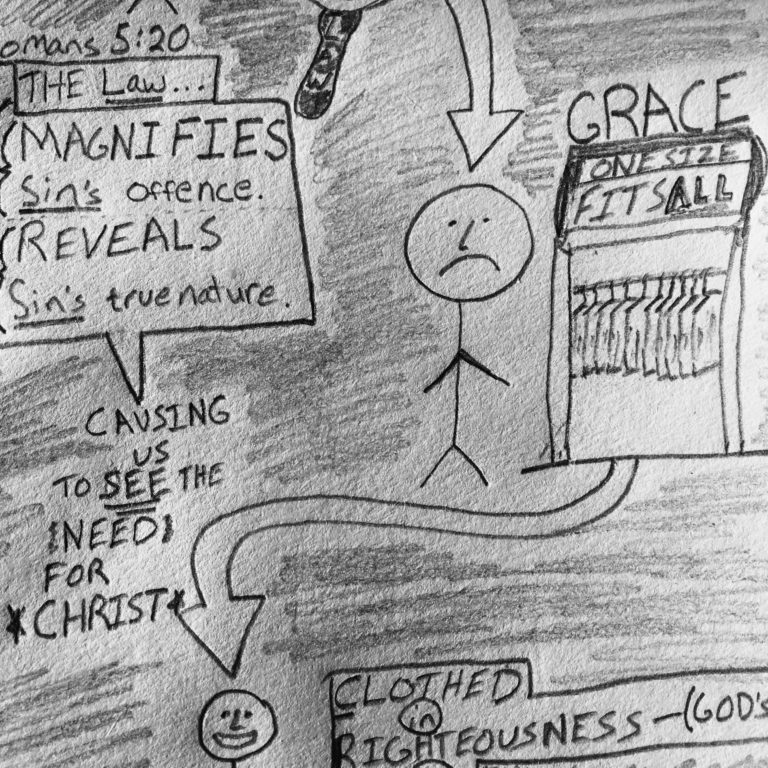 omans 5:20
THE Law...
MAGNIFIES
Sin's offence.
REVEALS
Sin's true nature.
CAUSING
US
TO SEE THE
NEED
FOR
*CHRIST*
LAW
GRACE
ONE SIZE
FITS ALL
CLOTHED
in
RIGHTEOUSNESS – (GOD's